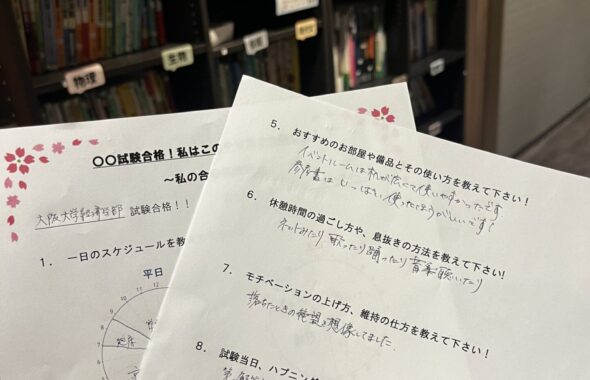 物理
生物
〇〇試験合格！私はこの
～私の合
大阪大学経済学部 試験合格！！
1． 一日のスケジュールを教
平日
11 12
10
9
8
5． おすすめのお部屋や備品とその使い方を教えて下さい！
イベントルームは机が広くて使いやすかったです
参考書はいっぱい使ったほうがいいです！
6． 休憩時間の過ごし方や、息抜きの方法を教えて下さい！
ネットみたり 歌ったり踊ったり 音楽聴いたり
7． モチベーションの上げ方、維持の仕方を教えて下さい！
落ちたときの絶望を想像してました
8． 試験当日、ハプニング